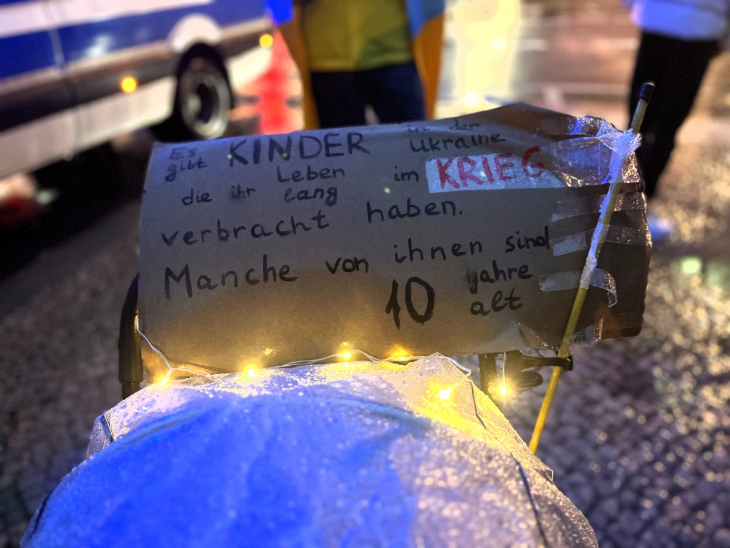 Es gibt KINDER in der Ukraine
die ihr Leben lang im KRIEG
verbracht haben.
Manche von ihnen sind
10 jahre alt